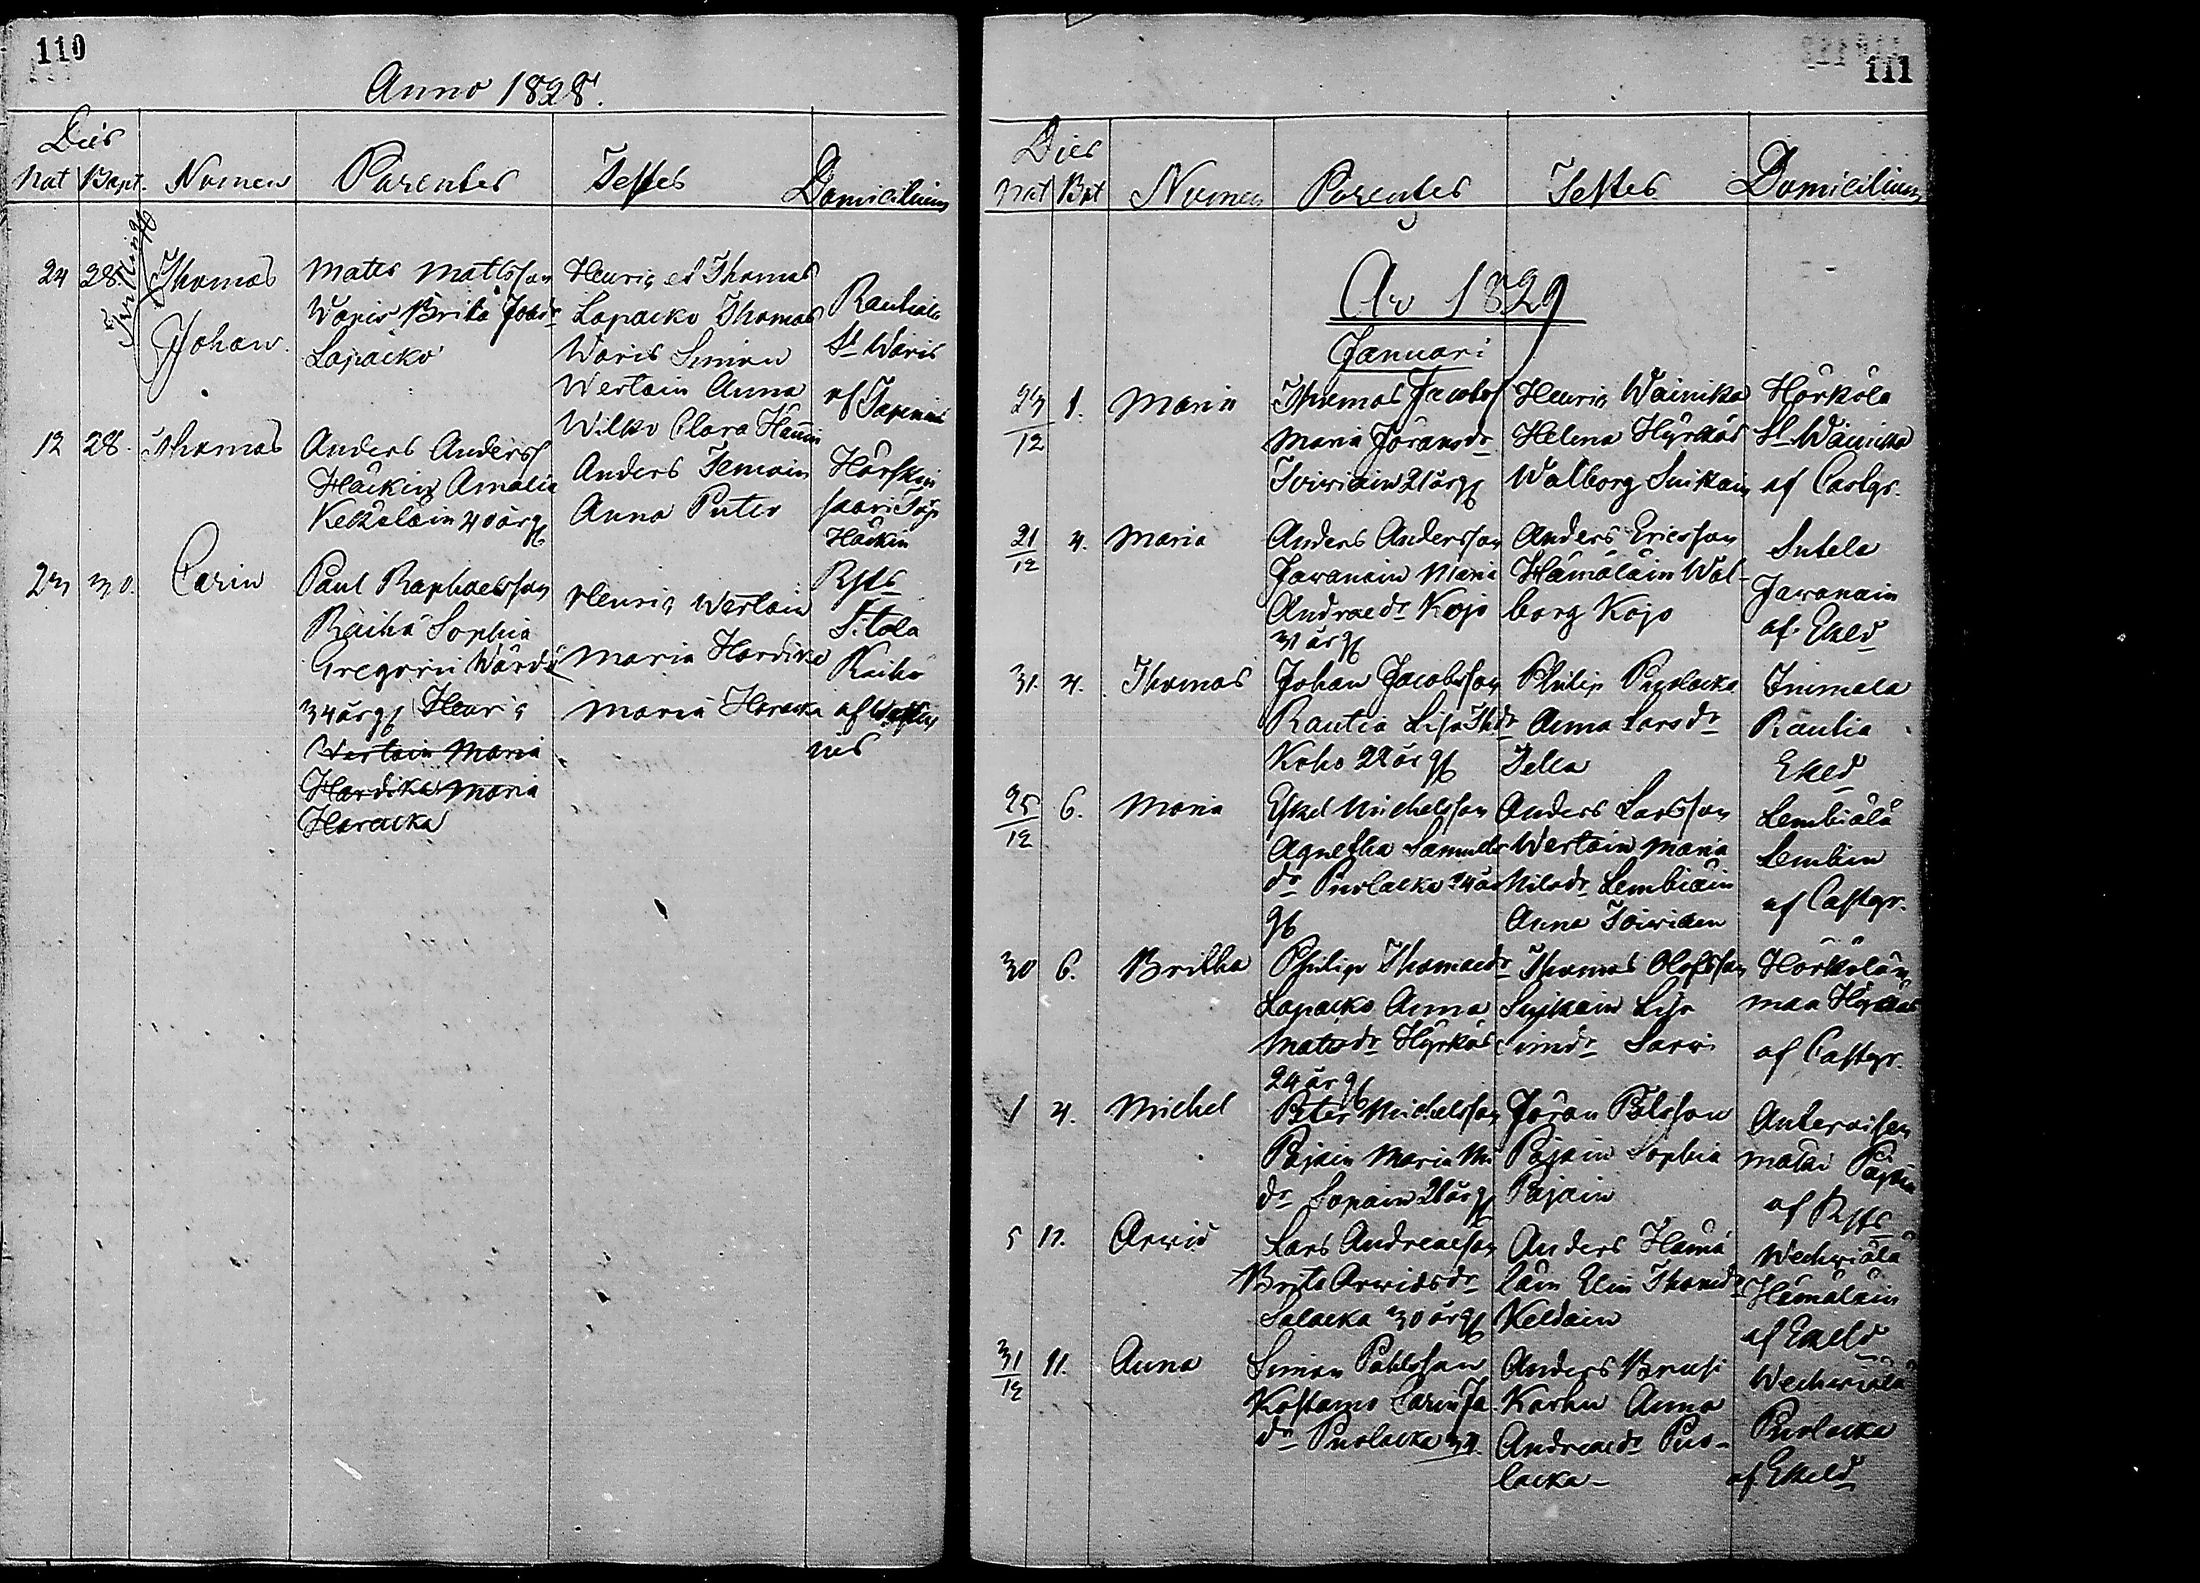 110
Anno 1828.
Dies
Nat Bapt. Nomen Parentes Testes Domicilium
24 28. Tvilling Thomas
Johan.
Mats Matsson
Waris Brita Joh.dr
Lapacko
Henric et Thomas
Lapacko Thomas
Waris Simon
Wertain Anna
Wilko Clara
Rautiala
St Waris
af
12 28. Thomas
Anders Anderss
Häckin Amalia
Kekäläin 40 årg
Anders Temoin
Anna Puter
Häckin
23 30. Carin
Paul Raphaelsson
Räihä Sophia
Gregorii
34 årg Henric
Wertain Maria
Hardika Maria
Haracka
Henric Wertain
Maria Hardika
Maria Haracka
Rysts
Sitola
Räihä
af
111
Dies
Nat Bat Nomen Parentes Testes Domicilium
Av 1829
Januari
27/12 1. Maria
Thomas Jacobss
Maria Göransdr
Toiviain 21 årg
Henric Wainika
Helena Hyrkäs
Walborg Suikain
Hörkölä
St Wäinika
af Castgr.
21/12 4. Maria
Anders Andersson
Javanain Maria
Andraedr Kojo
31 årg
Anders Ericsson
Hämäläin Wal-
borg Kojo
Sutela
Javanain
af Ekeld
31. 4. Thomas
Johan Jacobsson
Rautia Lisa Thdr
Koho 22 årg
Philip Puolacka
Anna Larsdr
Tella
Immala
Rautia
Ekeld
25/12 6. Maria
Eskel Michelsson
Agnetha Samuels
dr Puolacka 34 år
g
Anders Larsson
Wertain Maria
Nilsdr Lembiäin
Anna Toiviain
Lembiälä
Lembin
af Castgr.
30 6. Britha
Philip Thomaedr
Lapacko Anna
Matsdr Hyrkäs
24 årg
Thomas Olofsson
Suikain Lisa
Simdr Sarvi
Hörkölän
maa Hyrkäs
af Castgr.
1 4. Michel
Peter Michelsson
Pajain Maria Mi
dr Sopain 28 årg
Göran Pålsson
Pajain Sophia
Pajain
Anteroisen
mäki Pajain
af Rysts
5 11. Arvid
Lars Andreaeson
Brita Arvidsdr
Salacka 30 årg
Anders Hämä
läin Elin Thomdr
Keldain
Wechviälä
Hämäläin
af Ekeld
31/12 11. Anna
Simon Pahlsson
Kostamo Carin Ja
dr Puolacka 34.
Anders Brusi
Karhu Anna
Andreaedr Puo-
lacka-
Wechviälä
Puolacka
af Ekeld